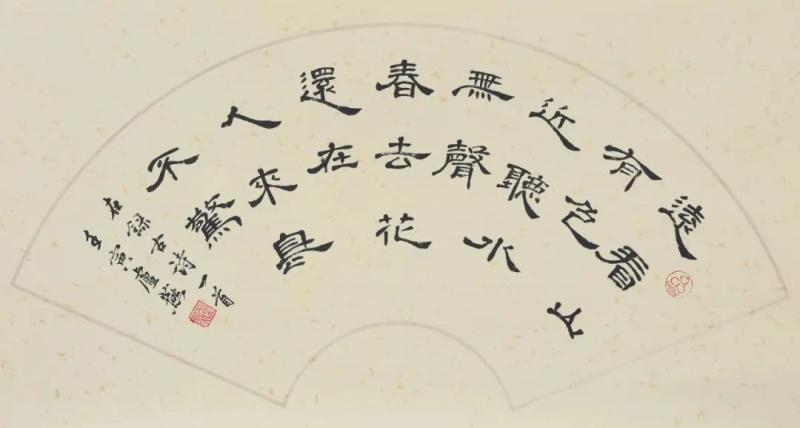 遠看山
有色
近聽水
無聲
春去花
還在
人來鳥
不驚
右錄古詩一首
壬寅盧